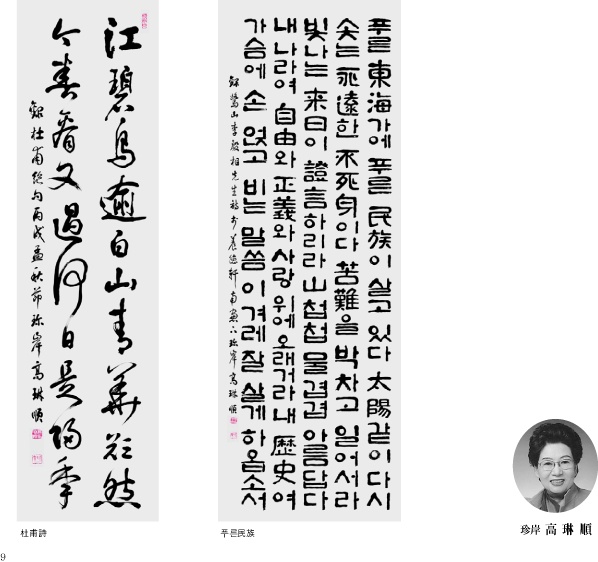 江碧鳥逾白山青華欲然
今春看又過何日是歸年
錄杜甫絶句丙戌孟秋節 珍岸 高琳順
杜甫詩
푸른 東海가에 푸른 民族이 살고 있다 太陽같이 다시
솟는 永遠한 不死身이다 苦難을 박차고 일어서라
빛나는 來日이 證言하리라 山첩첩 물겹겹 아름답다
내 나라여 自由와 正義와 사랑 위에 오래거라 내 歷史여
가슴에 손 얹고 비는 말씀 이 겨레 잘 살게 하옵소서
錄鷺山李殷相先生詩於養德軒南窓下 珍岸 高琳順
푸른民族
珍岸 高琳順
9